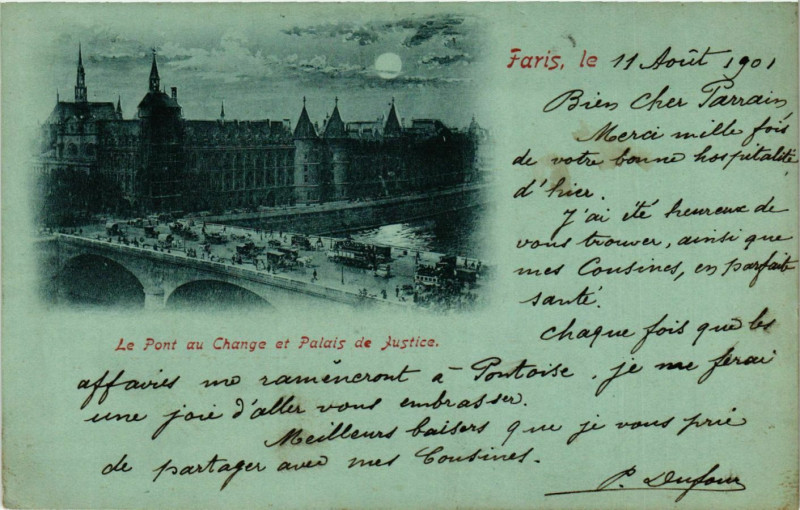 Paris, le 11 Août 1901
Bien Cher Parrain,
Merci mille fois
de votre bonne hospitalité
d'hier.
J'ai été heureux de
vous trouver, ainsi que
mes Cousines, en parfaite
santé.
Chaque fois que les
Le Pont au Change et Palais de Justice.
affaires me ramèneront à Pontoise, je me ferai
une joie d'aller vous embrasser.
Meilleurs baisers que je vous prie
de partager avec mes Cousines.
P. Dufour